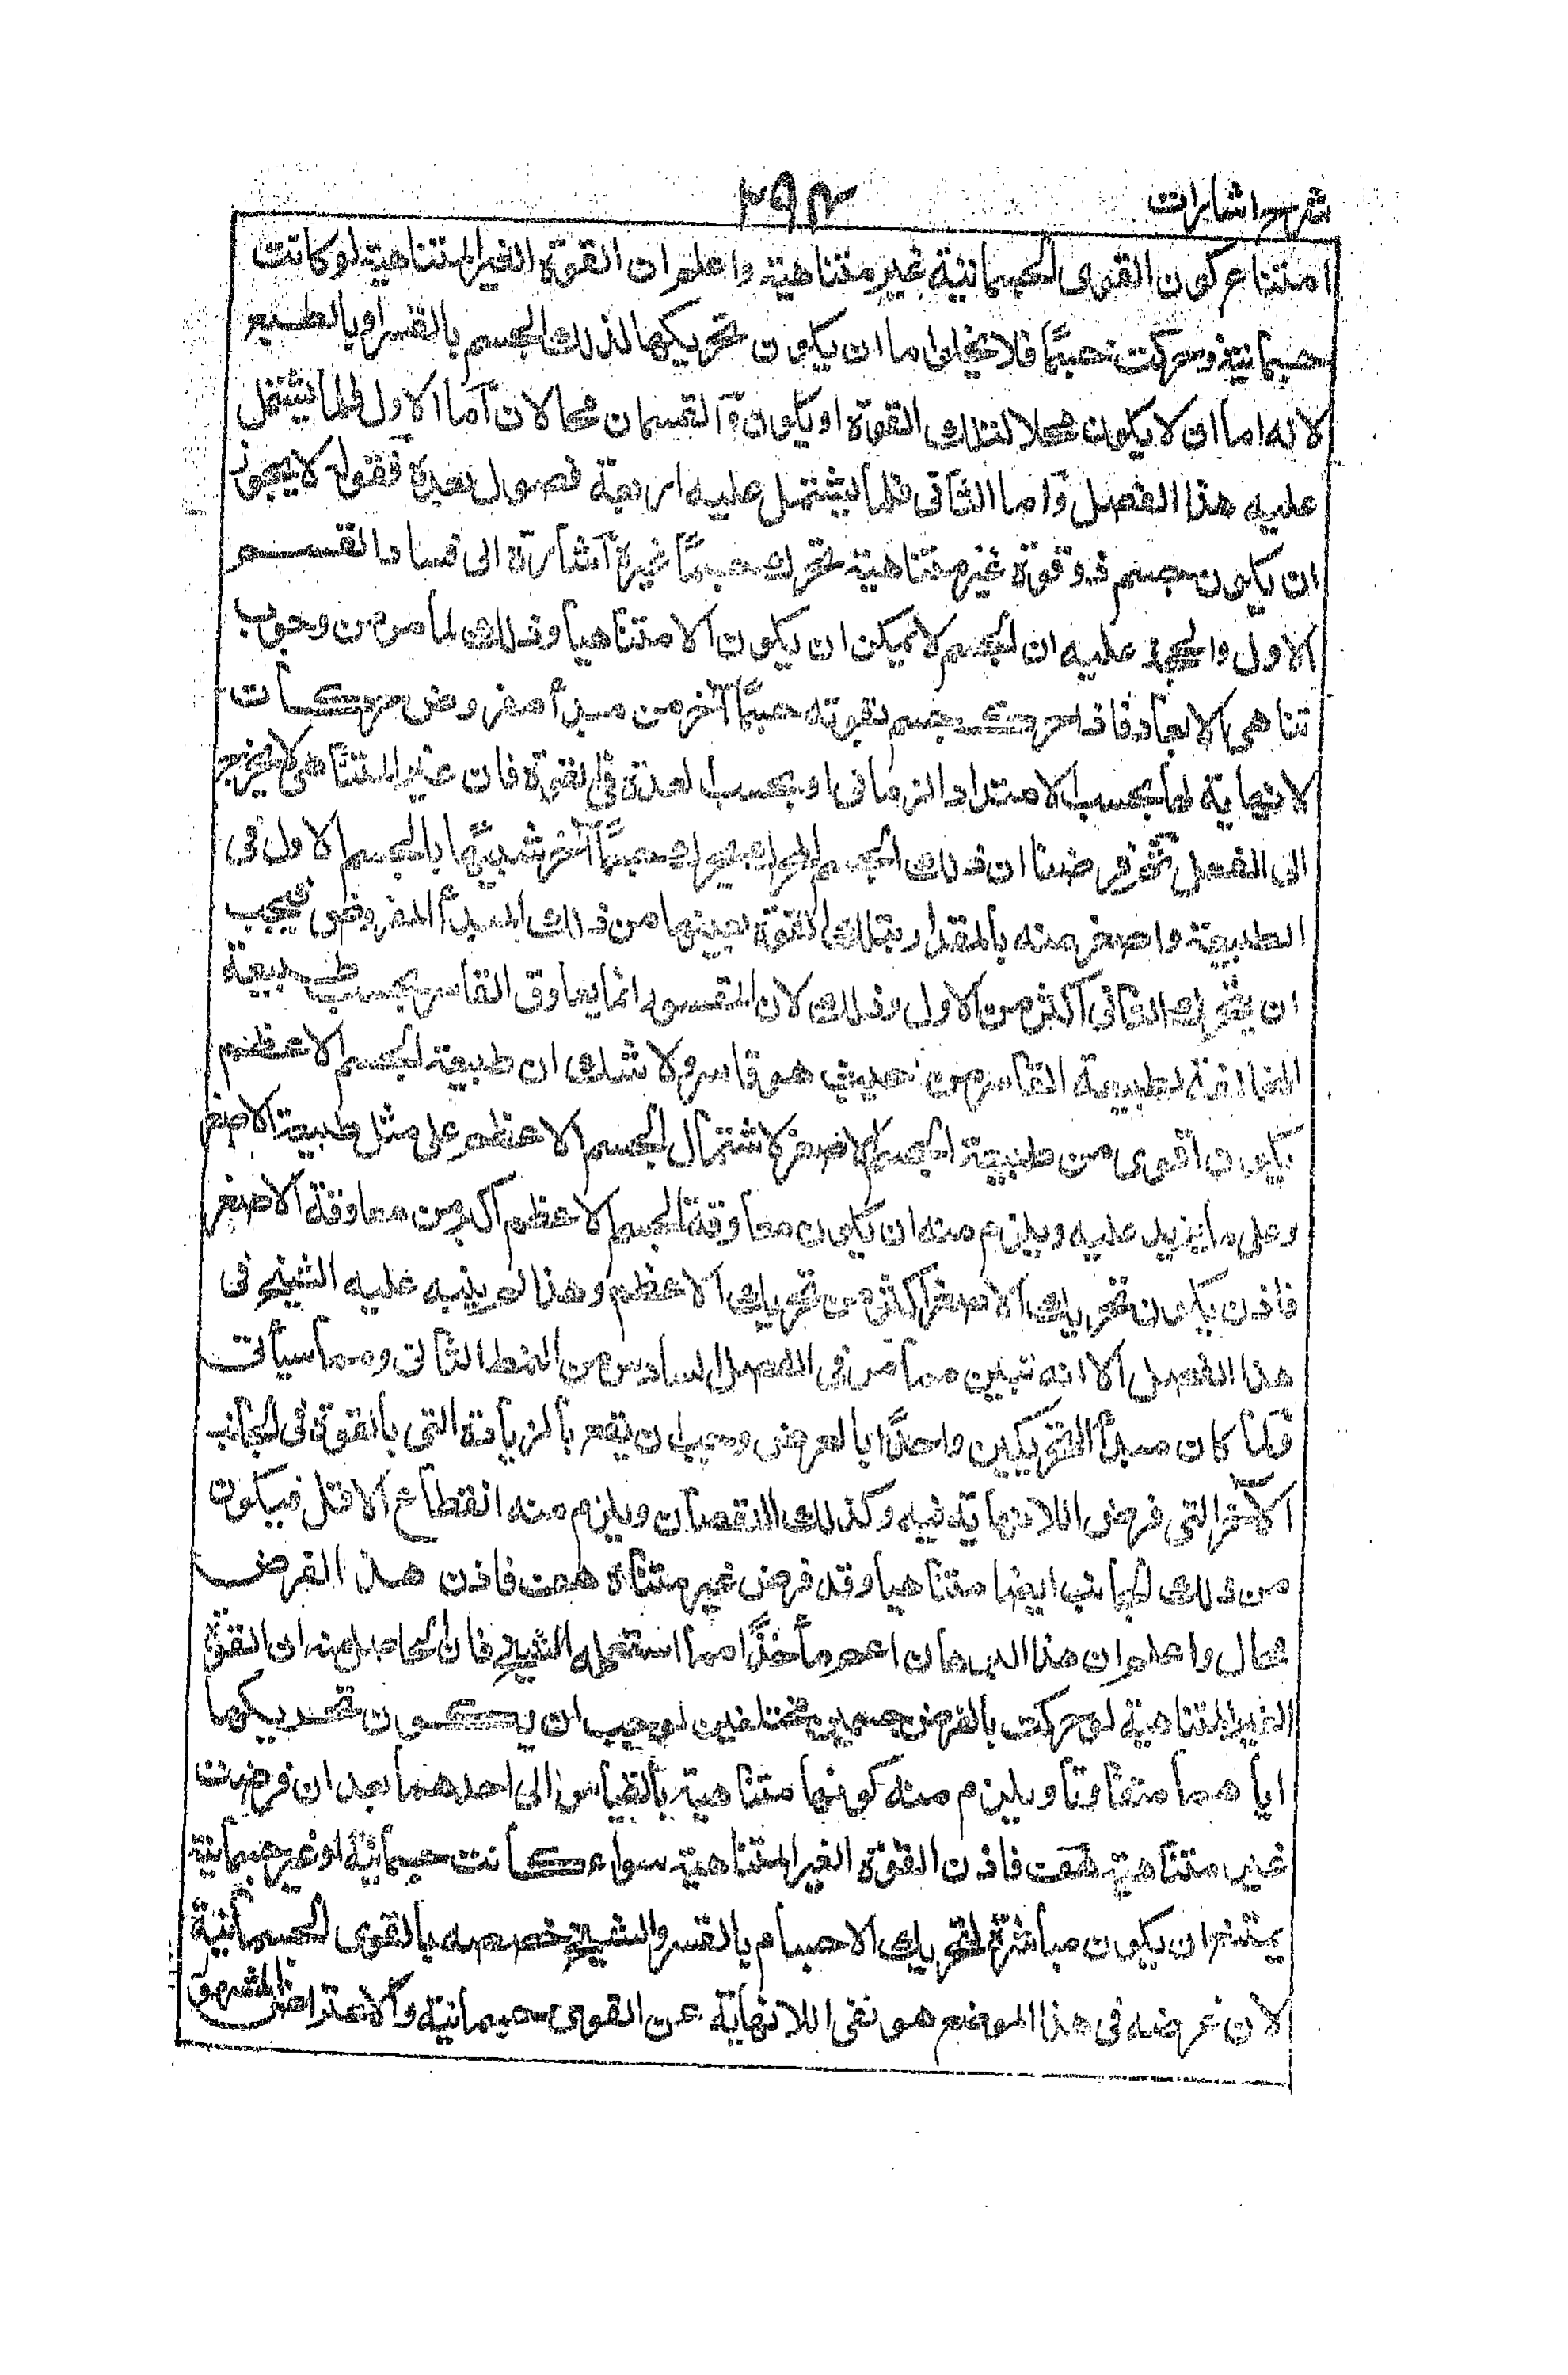 شرح اشارات
٢٩٤
امتناع كون القوى الجسمانية غير متناهية واعلم ان القوة الغير المتناهية لو كانت
جسمانية وحركت جسمًا فلا يخلو اما ان يكون تحريكها لذلك الجسم بالقسر او بالطبع
لانه اما ان لا يكون محلا لتلك القوة او يكون والقسمان محالان اما الاول فلما يشتمل
عليه هذا الفصل واما الثانى فلما يشتمل عليه اربعة فصول بعده فقوله لا يجوز
ان يكون جسم ذو قوة غير متناهية تحرك جسمًا غيره اشارة الى فساد القسم
الاول والحجة عليه ان الجسم لا يمكن ان يكون الا متناهيا وذلك لما مر من وجوب
تناهى الابعاد فاذا حرك جسم بقوته جسمًا آخر من مبدأ مفروض حركات
لا نهاية لها بحسب الامتداد الزمانى او بحسب العدة فى القوة فان غير المتناهى لا يخرج
الى الفعل ثم فرضنا ان ذلك الجسم المحرك يحرك جسمًا آخر شبيهًا بالجسم الاول فى
الطبيعة واصغر منه بالمقدار بتلك القوة بعينها من ذلك المبدأ المفروض فيجب
ان يتحرك الثانى اكثر من الاول وذلك لان المقسور انما يعاوق القاسر بحسب طبيعة
المخالفة لطبيعة القاسر من حيث هو قاسر ولا شك ان طبيعة الجسم الاعظم
يكون اقوى من طبيعة الجسم الاصغر لاشتمال الجسم الاعظم على مثل طبيعة الاصغر
وعلى ما يزيد عليه ويلزم منه ان يكون معاوقة الجسم الاعظم اكبر من معاوقة الاصغر
فاذن يكون تحريك الاصغر اكثر من تحريك الاعظم وهذا لم ينبه عليه الشيخ فى
هذا الفصل الا انه تبين مما مر فى الفصل السادس من النمط الثانى ومما سيأتى
فلما كان مبدأ التحريكين واحدًا بالفرض وجب ان يقع بالزيادة التى بالقوة فى الجانب
الآخر التى فرض اللانهاية فيه وكذلك النقصان ويلزم منه انقطاع الاقل فيكون
من ذلك الجانب ايضا متناهيا وقد فرض غير متناه هف فاذن هذا الفرض
محال واعلم ان هذا البرهان اعم مأخذًا مما استعمله الشيخ فان الحاصل منه ان القوة
الغير المتناهية لو حركت بالفرض جسمين مختلفين لوجب ان يكون تحريكها
اياهما متفاوتا ويلزم منه كونها متناهية بالقياس الى احدهما بعد ان فرضت
غير متناهية هف فاذن القوة الغير المتناهية سواء كانت جسمانية او غير جسمانية
يمتنع ان يكون مباشرة لتحريك الاجسام بالقسر والشيخ خصصه بالقوى الجسمانية
لان غرضه فى هذا الموضع هو نفى اللانهاية عن القوى جسمانية والاعتراض المشهور